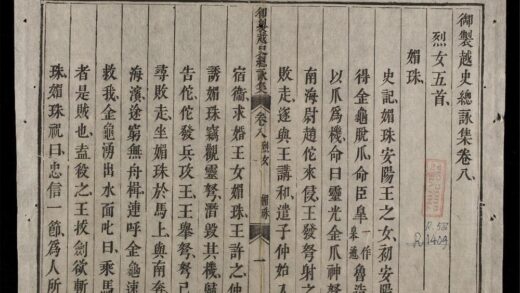 御製越史總詠集卷八
烈女五首
媚珠
史記媚珠安陽王之女初安陽
得金龜脫爪命臣臯一作臯通魯造
以爪爲機命曰靈光金爪神弩
南海尉趙佗來侵王發弩射之
敗走遂與王講和遣子仲始入
御製越史總詠集 卷八 烈女 媚珠 一
宿衞求婚王女媚珠王許之仲
誘媚珠竊觀靈弩潛毀其機
告佗佗發兵攻王王舉弩弩已
尋敗走坐媚珠於馬上與南奔
海濱途窮無舟楫連呼金龜速
救我金龜湧出水面叱曰乘馬
者是賊也盍殺之王拔劍欲斬
珠媚珠祝曰忠信一節爲人所